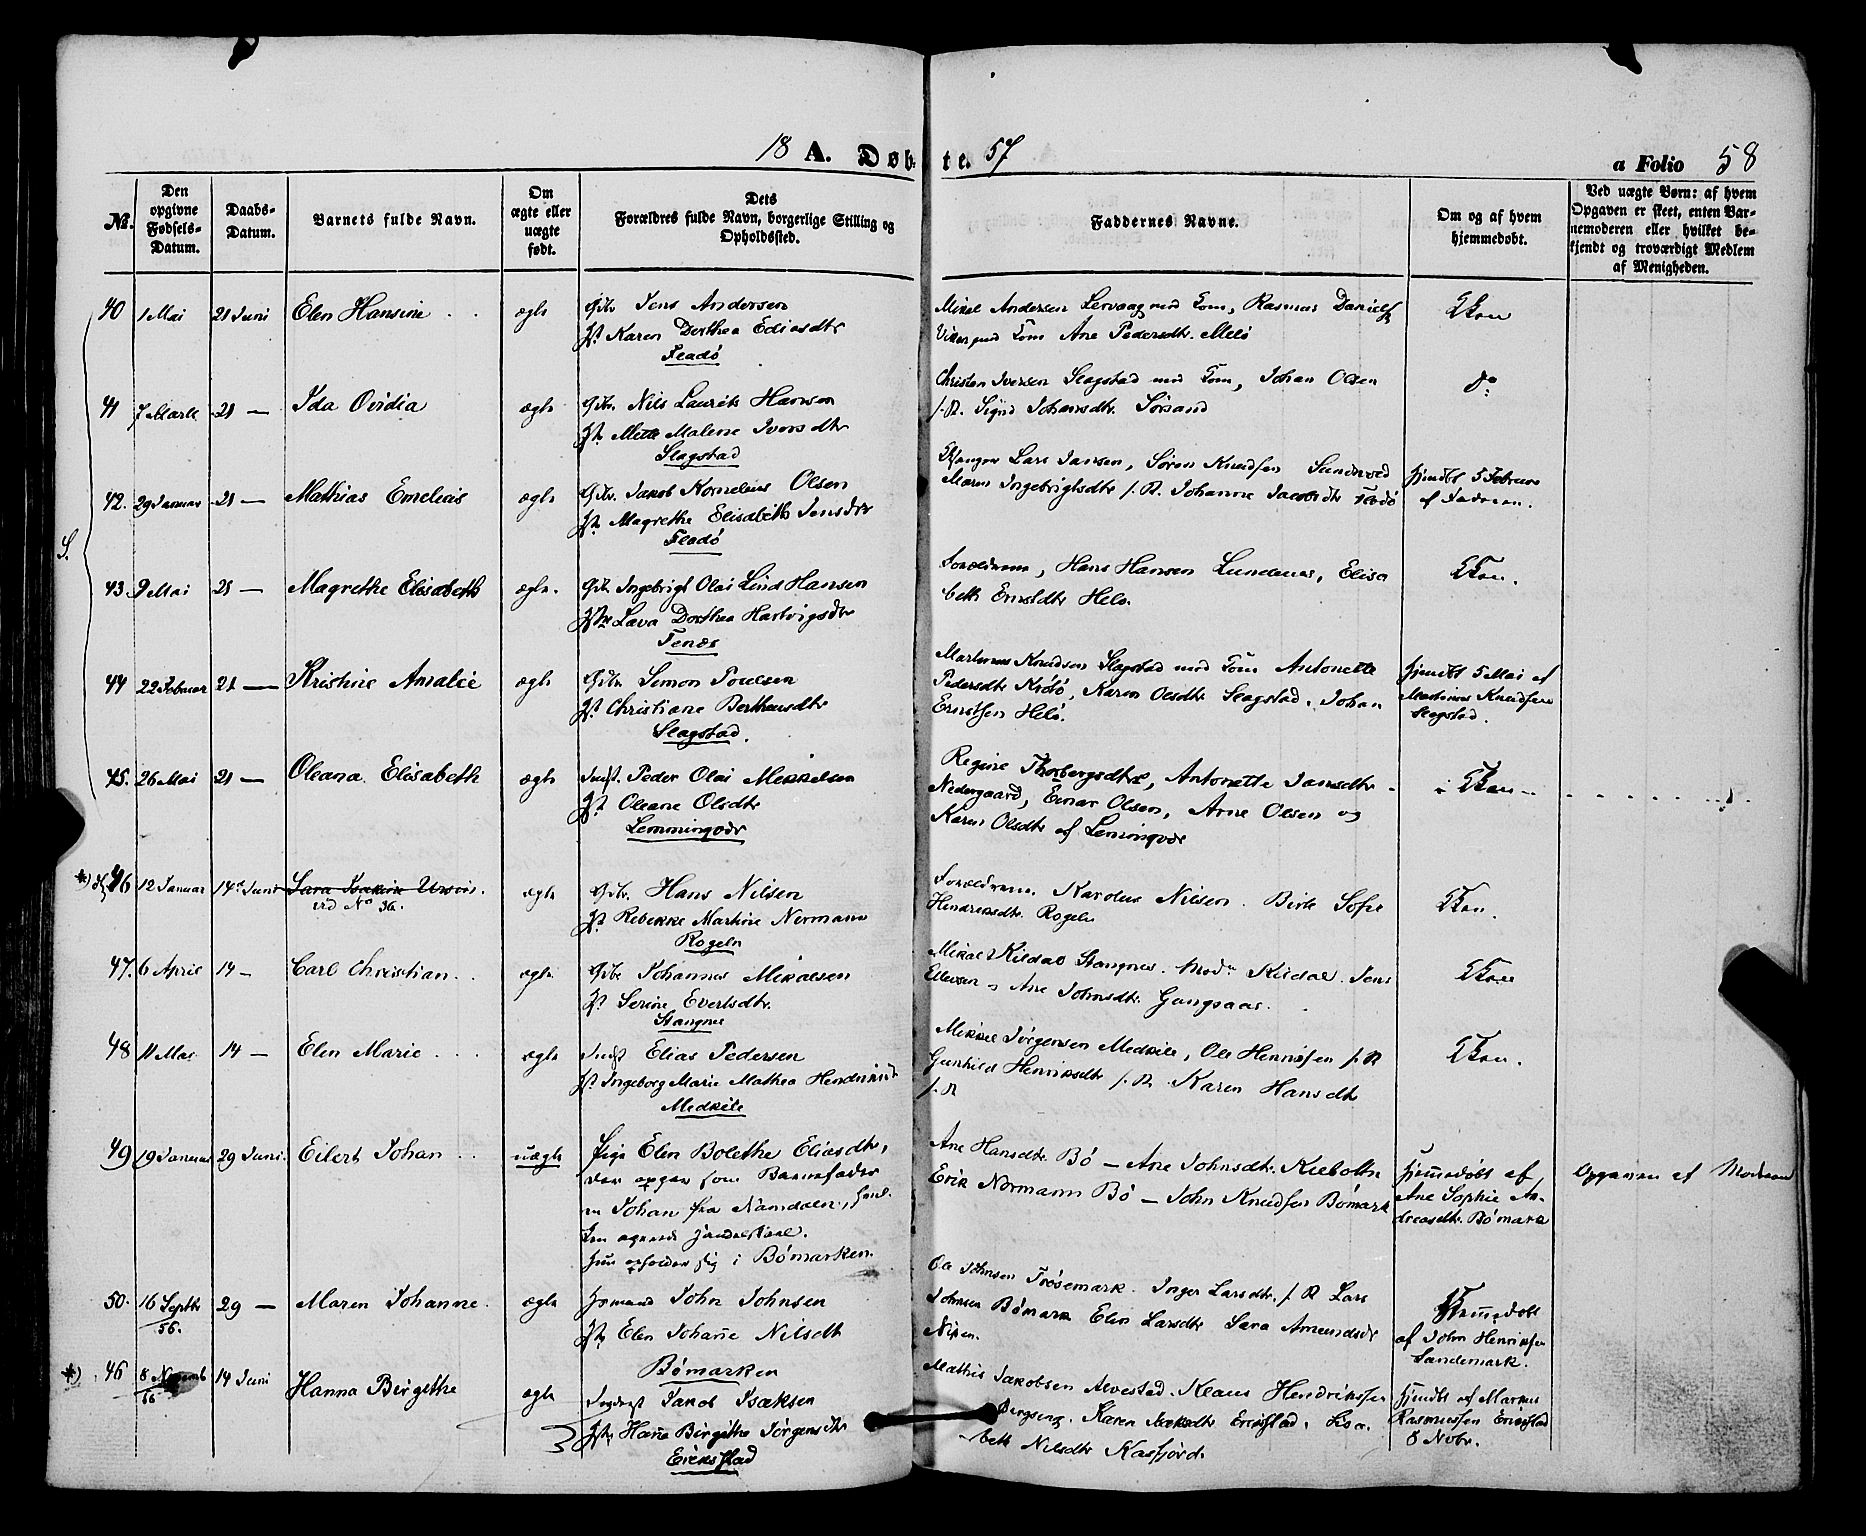 18 A. Døb- te. 57 a Folio 58
No. Den opgivne Fødsels-Datum. Daabs-Datum. Barnets fulde Navn. Om ægte eller uægte født. Dets Forældres fulde Navn, borgerlige Stilling og Opholdssted. Faddernes Navne. Om og af hvem hjemmedøbt. Ved uægte Børn: af hvem Opgaven er skeet, enten Barnemoderen eller hvilket bekjendt og troværdigt Medlem af Menigheden.
S.
40 1 Mai 21 Juni Elen Hansine ægte Gbr. Jens Andersen
H. Karen Dorthea Eliasdtr
Fladø
Mikal Andersen Lervaag med Kone, Rasmus Daniels
Ane Pedersdtr. Melø
41 7 Marts 21 — Ida Ovidia ægte Gbr. Nils Laurits Hansen
H. Mette Malene Iversdtr
Slagstad
Christen Iversen Slagstad med Kone, Johan Olsen
f. R. Signe Johansdtr Sørsand
do
42. 29 Januar 21 — Mathias Emelius ægte Gbr. Jakob Kornelius Olsen
H. Magrethe Elisabeth Jensdtr
Fladø
Lars Jansen, Søren Knudsen Sundsved
Maren Ingebrigtsdtr f. R. Johanne Jacobsdtr Fladø
hjemdt 5 Februar
af Faderen.
43. 9 Mai 21 — Magrethe Elisabeth ægte. Gbr. Ingebrigt Olai Lind Hansen
H. Lava Dorthea Hartvigsdtr
Fenes
Forældrene, Hans Hansen Lundenes, Elisa
beth Ernstdtr Helø.
44 22 Februar 21 — Kristine Amalie ægte Gbr. Simon Poulsen
H. Christiane Berthensdtr
Slagstad.
Martinus Knudsen Slagstad med Kone Antonette
Pedersdtr Krøtø, Karen Olsdtr Slagstad, Johan
Ernstsen Helø.
hjemdt 5 Mai af
Martinus Knudsen
Slagstad.
45. 26 Mai 21 — Oleana Elisabeth ægte Indst. Peder Olai Mikkelsen
H. Oleane Olsdtr
Lemmingvær
Regine Thorbergsdtr, Antonette Jansdtr
Nedergaard, Einar Olsen, Arne Olsen og
Karen Olsdtr af Lemingvær
*) 46 12 Januar 14 Juni Sara Isakine Ursin.
vid No 36.
ægte Gbr. Hans Nilsen
H. Rebekke Martine Normann
Rogeln
Forældrene. Karolus Nilsen. Birte Sofie
Hendriksdtr. Rogeln
47. 6 April 14 — Carl Christian ægte Gbr. Johannes Mikalsen
H. Serine Evertsdtr.
Stangnes
Mikal Kildal Stangnes. Kildal. Jens
Ellevsen Ane Johnsdtr. Gangsaas.
48 11 Mai 14 — Elen Marie ægte Indst Elias Pedersen
H. Ingeborg Marie Mathea Hendriksdtr
Medkile
Mikkel Jørgensen Medkile, Ole Henriksen f. R
Gunhild Henriksdtr f. R. Karen Hansdtr
f. R
49 19 Januar 29 Juni. Eilert Johan uægte Pige Elen Bolethe Eliasdtr,
der opgav som Barnefader
en Johan fra Namdalen,
Hun opholder sig i Bømarken.
Ane Hansdtr. Bø — Ane Johnsdtr. Kiebotn
Erik Normann Bø — John Knudsen Bømark
Hjemmedøbt af
Ane Sophie An-
dreasdtr. Bømark
Opgaven af Moderen
50. 16 Septbr 56. 29 — Maren Johanne. ægte Husmand John Johnsen
H. Elen Johanne Nilsdtr
Bømarken
Ole Johnsen Trøsemark. Inger Larsdtr. f. R Lars
Johnsen Bømark Elen Larsdtr Sara Amundsdtr
Hjemmedøbt
af John Henriksen
Sandemark.
*) 46 8 Novemb 56 14 Juni Hanna Birgithe ægte Jakob Isaksen
H. Hanne Birgithe Jørgensdtr
Eriksstad
Mathis Jakobsen Alvestad. Klaus Hendriksen
Bergseng. Karen Isaksdtr Erikstad. Lisa-
beth Nilsdtr Kasfjord.
hjemdt af Markus
Rasmussen Erikstad
8 Nobr.